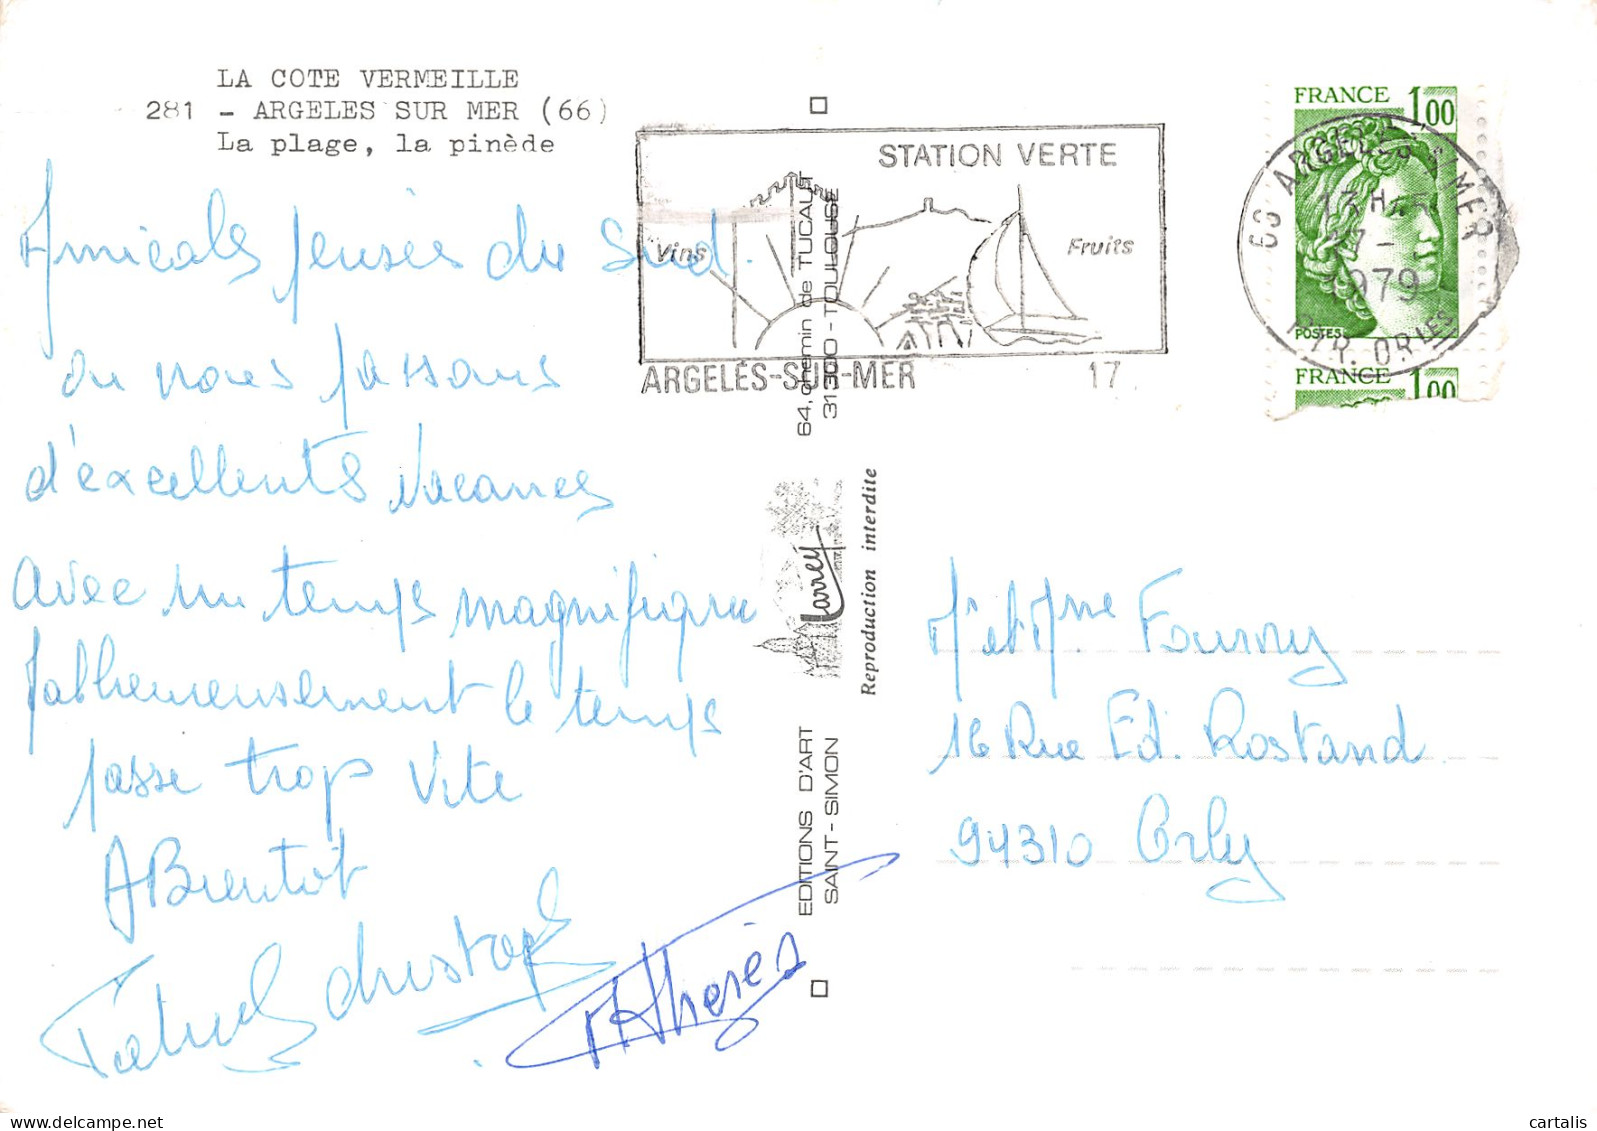 LA COTE VERMEILLE
281 - ARGELES SUR MER (66)
La plage, la pinède
Amicales pensées du Sud.
ou nous passons
d'excellentes vacances
avec un temps magnifique
Malheureusement le temps
passe trop vite
A Bientôt
Patrick Christophe
M Thérèse
STATION VERTE
Vins
Fruits
ARGELÈS-SUR-MER
17
64, chemin de TUCAUT
31300 - TOULOUSE
Larrey
Reproduction interdite
EDITIONS D'ART
SAINT-SIMON
FRANCE 1,00
POSTES
FRANCE 1,00
66 ARGELES S MER
13 H
17 -
1979
PYR. ORLES
M et Mme Fourny
16 Rue Ed. Rostand
94310 Orly
cartalis